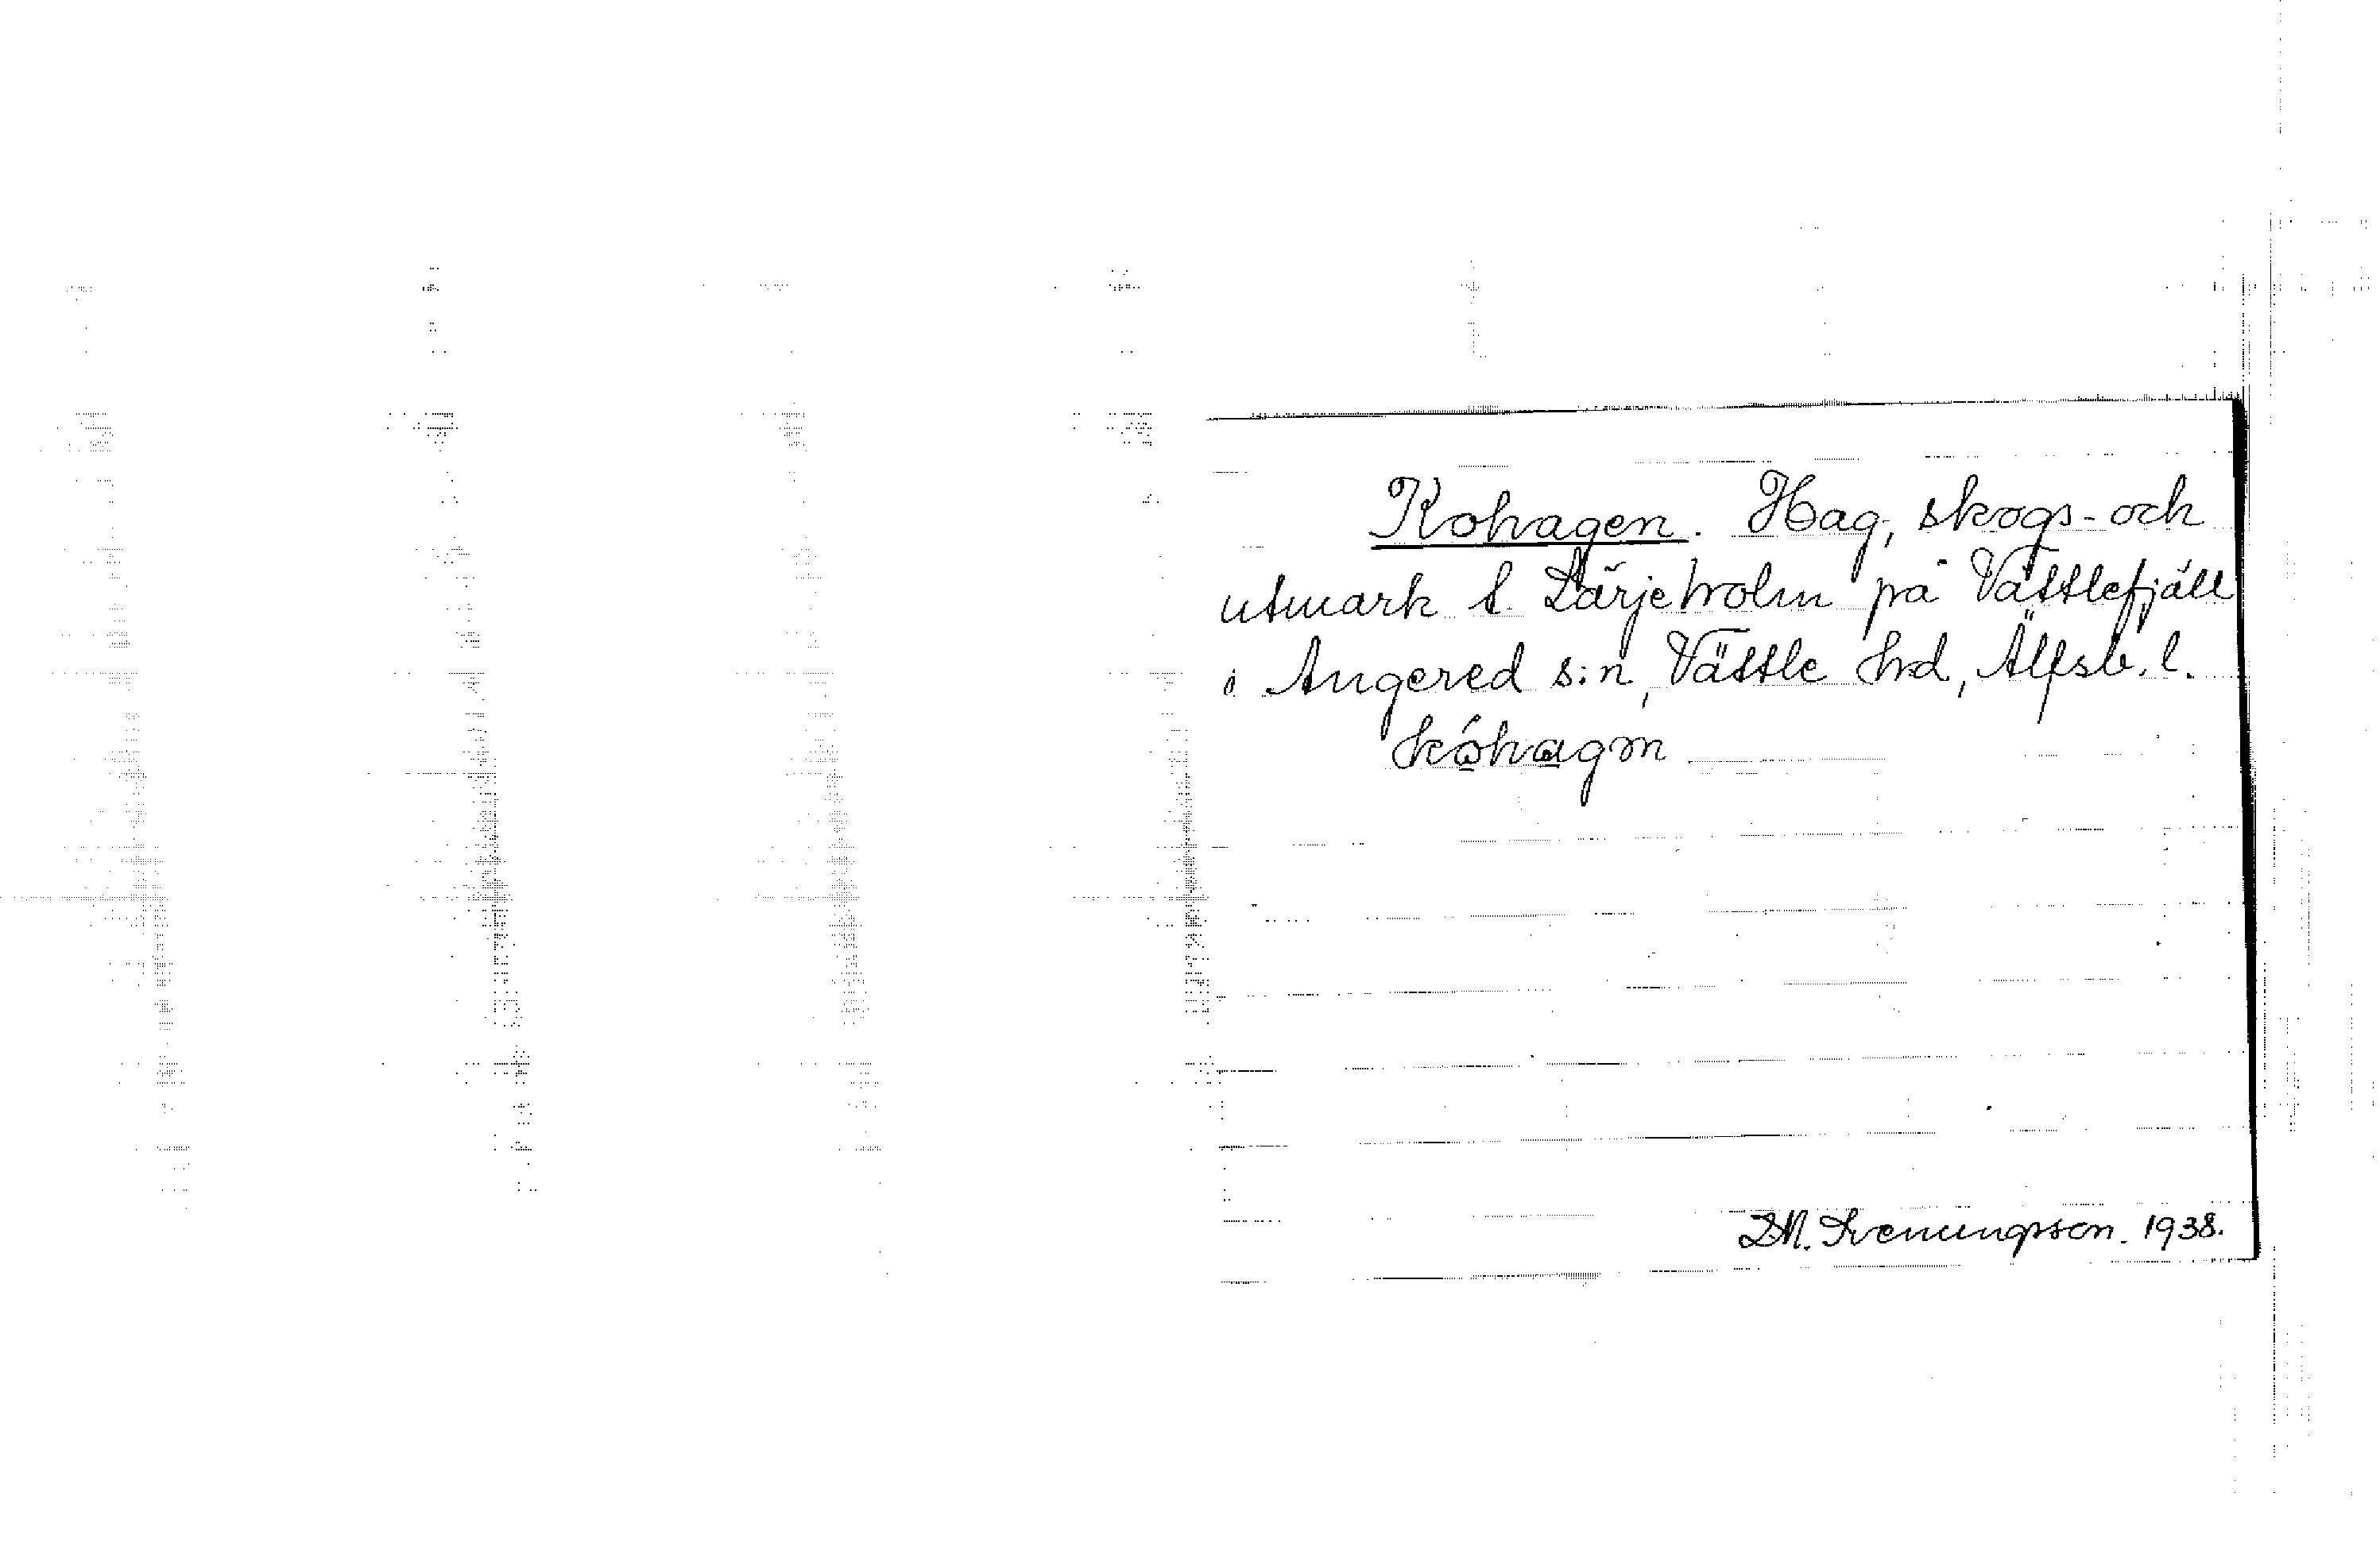 Kohagen. Hag, skogs- och
utmark t. Lärjeholm på Vättlefjäll
i Angered s:n, Vättle hd, Älfsb. l.
kóhagɷn
1938.